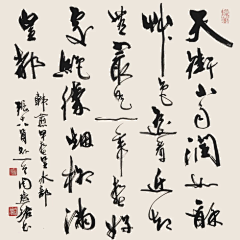 天街小雨潤如酥
艸色遥看近却
無最是一年春好
處絕勝烟柳滿
皇都
韓愈早春呈水部
張十八員外